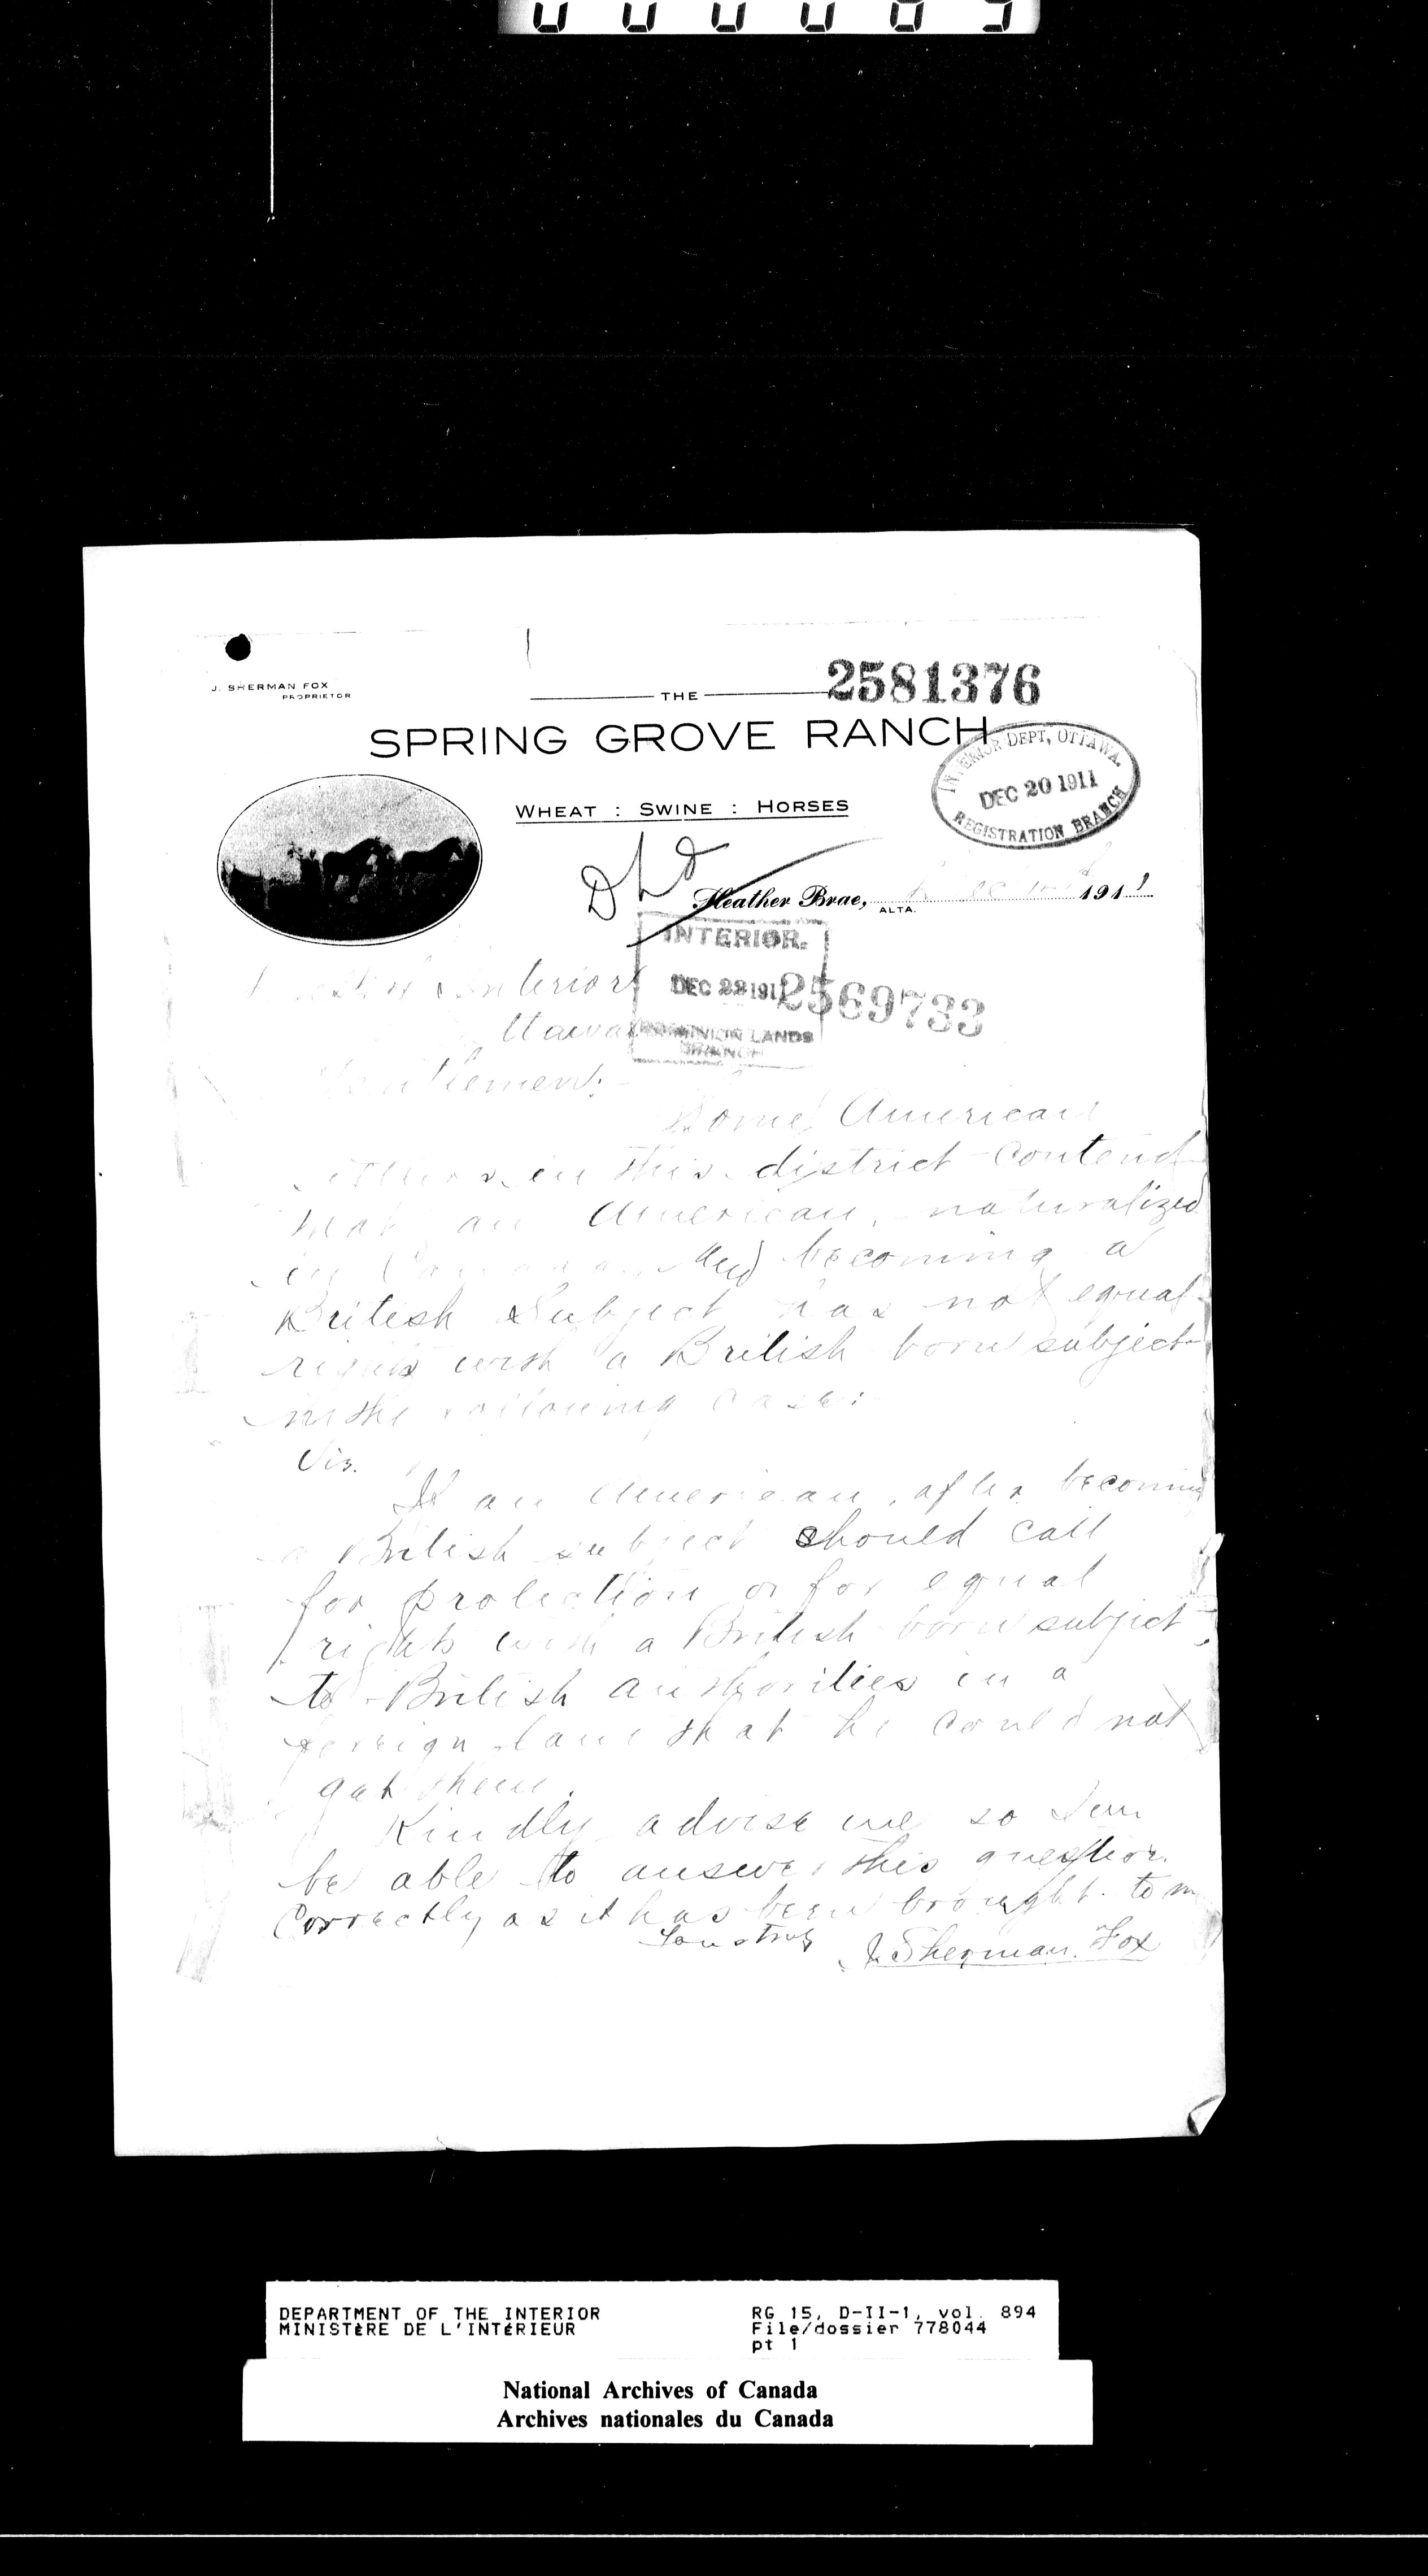 000089
J. SHERMAN FOX
PROPRIETOR
THE
2581376
SPRING GROVE RANCH
INTERIOR DEPT, OTTAWA.
DEC 20 1911
REGISTRATION BRANCH
WHEAT : SWINE : HORSES
DLd
Heather Brae, ALTA. Dec 1911
INTERIOR.
DEC 22 1911
DOMINION LANDS
BRANCH
2569733
Interior
Ottawa
Gentlemen:-
Some American
in this district contend
that an American, naturalized
in Canada, and becoming a
British Subject has not equal
rights with a British born subject
in the following case:
Viz.
If an American, after becoming
a British subject should call
for protection or for equal
rights with a British born subject,
to British authorities in a
foreign land that he could not
get them.
Kindly advise me so I
be able to answer this question
correctly as it has been brought to
Yours truly J. Sherman Fox
DEPARTMENT OF THE INTERIOR
MINISTÈRE DE L'INTÉRIEUR
RG 15, D-II-1, vol. 894
File/dossier 778044
pt 1
National Archives of Canada
Archives nationales du Canada